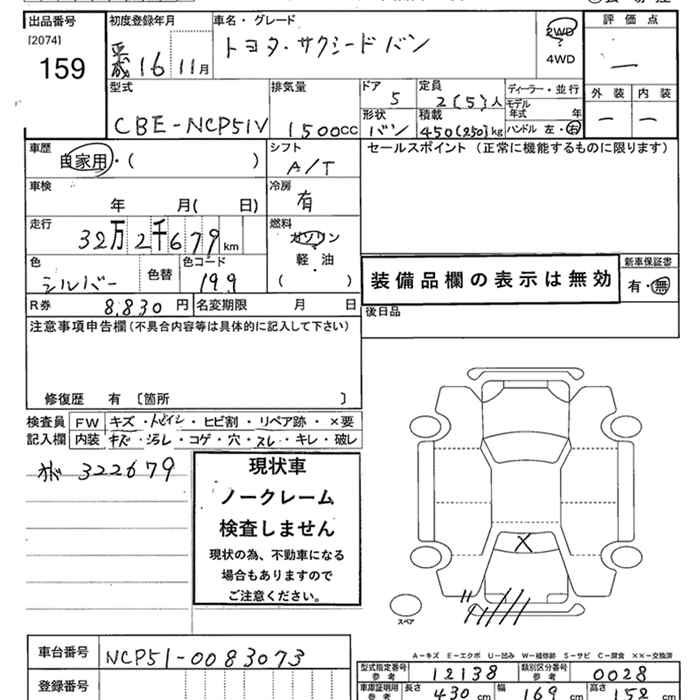 出品番号 初度登録年月 車名・グレード 評価点
[2074] 159 平成 16 11月 トヨタ・サクシードバン 2WD 4WD —
型式 排気量 ドア 定員 ディーラー・並行 外装 内装
CBE-NCP51V 1500CC 5 2{5}人 モデル年式 年 — —
形状 バン 積載 450(250)kg ハンドル 左・右
車歴 自家用・( ) シフト A/T セールスポイント(正常に機能するものに限ります)
車検 年 月( 日) 冷房 有
走行 32万2千679km 燃料 ガソリン 軽・油 ( )
色 シルバー 色替 色コード 199 装備品欄の表示は無効 新車保証書 有・無
R券 8,830円 名変期限 月 日 後日品
注意事項申告欄(不具合内容等は具体的に記入して下さい)
修復歴 有 [箇所 ]
検査員 FW キズ・トビイシ・ヒビ割・リペア跡・×要
記入欄 内装 キズ・汚レ・コゲ・穴・スレ・キレ・破レ
322679
現状車
ノークレーム
検査しません
現状の為、不動車になる
場合もありますので
ご注意ください。
X
スペア
A−キズ E−エクボ U−凹み W−補修跡 S−サビ C−腐食 ××−交換済
車台番号 NCP51-0083073 型式指定番号 参考 12138 類別区分番号 参考 0028
登録番号 車庫証明用 参考 長さ 430cm 幅 169cm 高さ 152cm